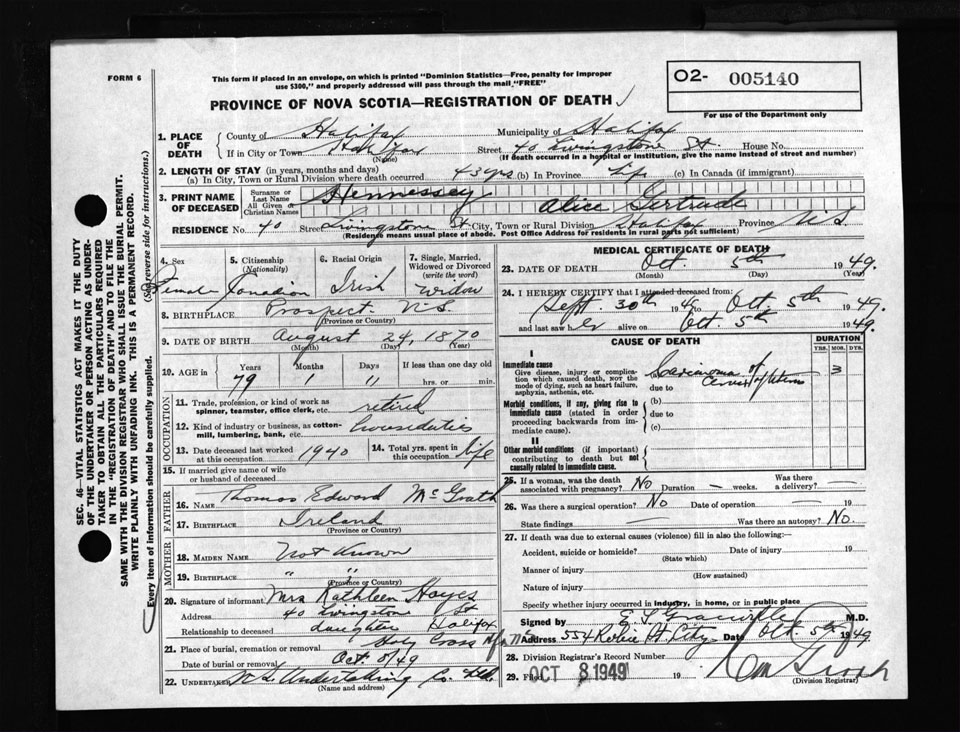 FORM 6
This form if placed in an envelope, on which is printed "Dominion Statistics—Free, penalty for improper
use $300," and properly addressed will pass through the mail, "FREE"
O2- 005140
For use of the Department only
PROVINCE OF NOVA SCOTIA—REGISTRATION OF DEATH
1. PLACE OF DEATH County of Halifax Municipality of Halifax
If in City or Town Halifax (Name) Street 40 Livingstone St. House No.
(If death occurred in a hospital or institution, give the name instead of street and number)
2. LENGTH OF STAY (in years, months and days)
(a) In City, Town or Rural Division where death occurred 43 yrs (b) In Province Life (c) In Canada (if immigrant)
3. PRINT NAME OF DECEASED Surname or Last Name Hennessey
All Given or Christian Names Alice Gertrude
RESIDENCE No. 40 Street Livingstone St. City, Town or Rural Division Halifax Province N.S.
(Residence means usual place of abode. Post Office Address for residents in rural parts not sufficient)
4. Sex Female
5. Citizenship (Nationality) Canadian
6. Racial Origin Irish
7. Single, Married, Widowed or Divorced (write the word) widow
8. BIRTHPLACE Prospect N.S.
(Province or Country)
9. DATE OF BIRTH August 24, 1870
(Month) (Day) (Year)
10. AGE in Years 79 Months 1 Days 11 If less than one day old hrs. or min.
OCCUPATION
11. Trade, profession, or kind of work as spinner, teamster, office clerk, etc. retired
12. Kind of industry or business, as cotton-mill, lumbering, bank, etc. housedutis
13. Date deceased last worked at this occupation 1940
14. Total yrs. spent in this occupation life
15. If married give name of wife or husband of deceased
FATHER
16. NAME Thomas Edward McGrath
17. BIRTHPLACE Ireland
(Province or Country)
MOTHER
18. MAIDEN NAME Not Known
19. BIRTHPLACE " "
(Province or Country)
20. Signature of informant Mrs Kathleen Hayes
Address 40 Livingstone St
Relationship to deceased daughter Halifax
21. Place of burial, cremation or removal Holy Cross
Date of burial or removal Oct
22. UNDERTAKER N.S. Undertaking Co. Ltd.
(Name and address)
MEDICAL CERTIFICATE OF DEATH
23. DATE OF DEATH Oct. 5th 1949.
(Month) (Day) (Year)
24. I HEREBY CERTIFY that I attended deceased from:
Sept. 30th 1949 to Oct. 5th 1949.
and last saw her alive on Oct. 5th 1949.
CAUSE OF DEATH
DURATION
YRS. MOS. DYS.
I
Immediate cause
Give disease, injury or complication which caused death, NOT the mode of dying, such as heart failure, asphyxia, asthenia, etc.
of Cervix of Uterus 3
due to
Morbid conditions, if any, giving rise to immediate cause (stated in order proceeding backwards from immediate cause).
(b)
due to
(c)
II
Other morbid conditions (if important) contributing to death but not causally related to immediate cause.
25. If a woman, was the death associated with pregnancy? No Duration — weeks. Was there a delivery? —
26. Was there a surgical operation? No Date of operation — 19
State findings — Was there an autopsy? No.
27. If death was due to external causes (violence) fill in also the following:—
Accident, suicide or homicide? Date of injury 19
(State which)
Manner of injury
(How sustained)
Nature of injury
Specify whether injury occurred in industry, in home, or in public place
Signed by M.D.
Address 554 Robie St. City Date Oct. 5th 1949
28. Division Registrar's Record Number
29. Filed OCT 8 1949 19
(Division Registrar)
SEC. 46—VITAL STATISTICS ACT MAKES IT THE DUTY
OF THE UNDERTAKER OR PERSON ACTING AS UNDERTAKER
TO OBTAIN ALL THE PARTICULARS REQUIRED
IN THE "REGISTRATION OF DEATH" AND TO FILE THE
SAME WITH THE DIVISION REGISTRAR WHO SHALL ISSUE THE BURIAL PERMIT.
WRITE PLAINLY WITH UNFADING INK. THIS IS A PERMANENT RECORD.
Every item of information should be carefully supplied. (See reverse side for instructions.)